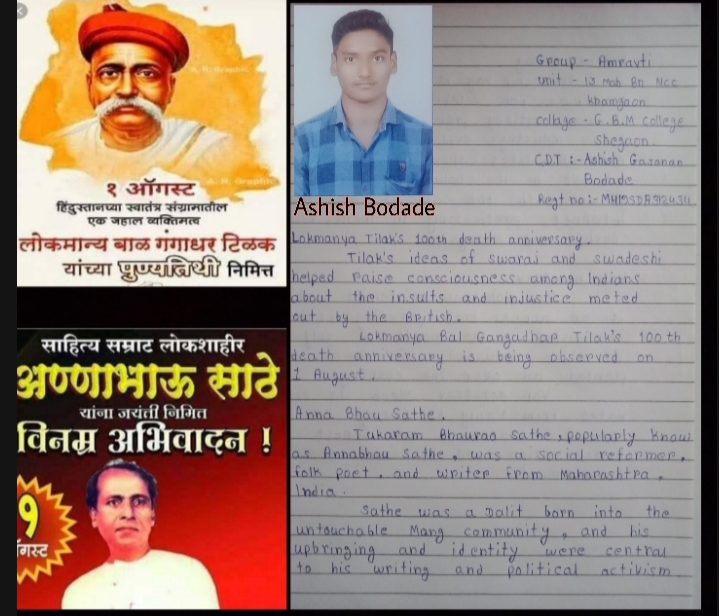 १ ऑगस्ट
हिंदुस्तानच्या स्वातंत्र संग्रामातील
एक जहाल व्यक्तिमत्व
लोकमान्य बाळ गंगाधर टिळक
यांच्या पुण्यतिथी निमित्त
साहित्य सम्राट लोकशाहीर
अण्णाभाऊ साठे
यांना जयंती निमित
विनम्र अभिवादन !
१
गस्ट
Ashish Bodade
Group - Amravti
unit - 13 Mah Bn NCC
khamgaon
collage - G.B.M college
Shegaon
CDT :- Ashish Gajanan
Bodade
Regt no :-
Lokmanya Tilak's 100th death anniversary.
Tilak's ideas of swaraj and swadeshi
helped raise consciousness among Indians
about the insults and injustice meted
out by the British.
Lokmanya Bal Gangadhar Tilak's 100 th
death anniversary is being observed on
1 August.
Anna Bhau Sathe.
Tukaram Bhaurao Sathe, popularly know
as Annabhau Sathe, was a social reformer,
folk poet, and writer from Maharashtra,
India.
Sathe was a Dalit born into the
untouchable Mang community, and his
upbringing and identity were central
to his writing and political activism